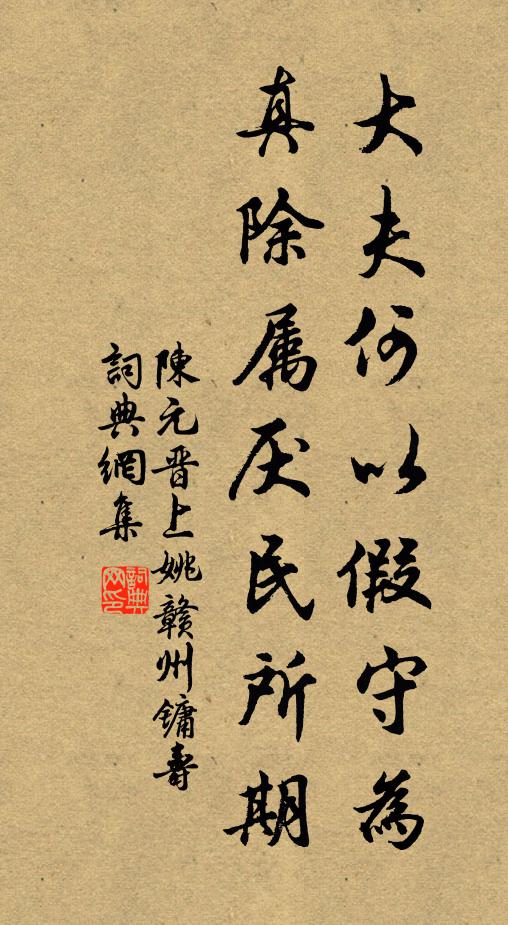 大夫何以假守為
真除属厌民所期
陳元晋上姚赣州鏞壽
詞典網集
詞典網印